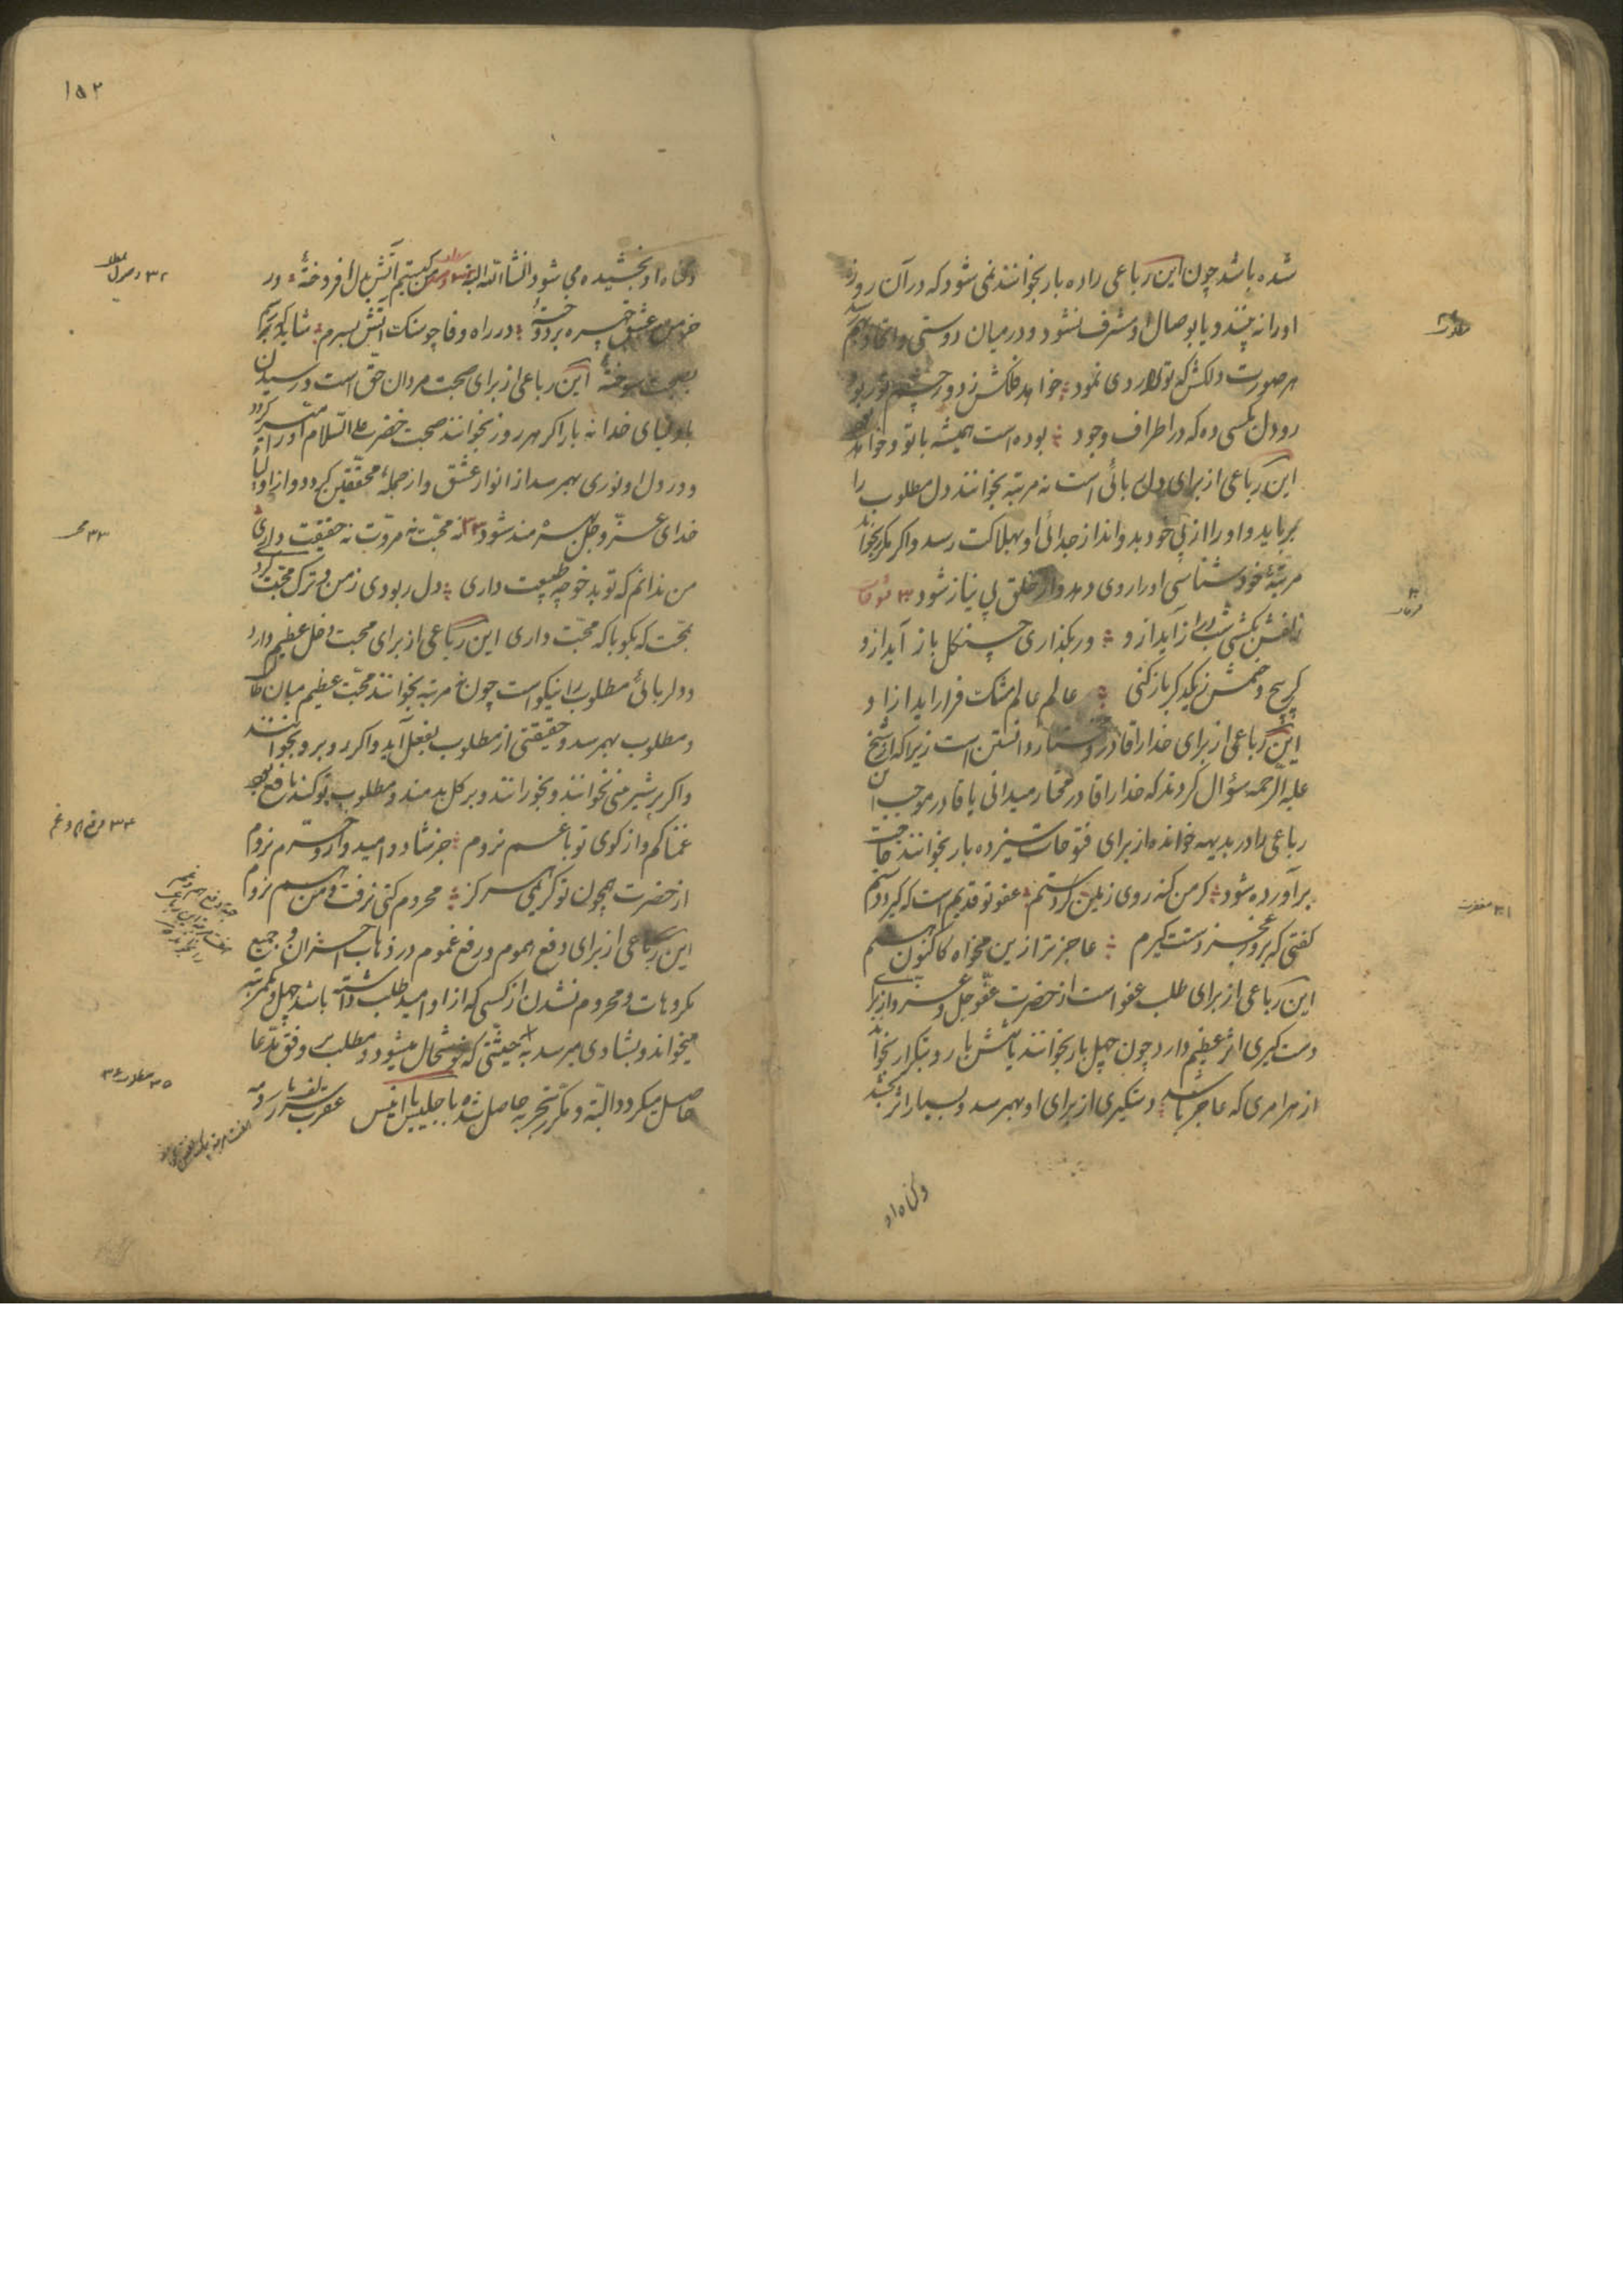 شده باشد چون این رباعی را ده بار بخوانند نمی شود که در آن روز
او را نه بیند و یا بوصال او مشرف نشود و در میان دوستی و اتحاد بهم رسد
هر صورت دلکش که ترا روی نمود خواهد فلکش ز دور چشم تو ربود
رو دل بکسی ده که در اطراف وجود بوده است همیشه با تو و خواهد بود
این رباعی از برای دل ربائی است نه مرتبه بخوانند دل مطلوب را
برباید و او را از پی خود بدواند از جدائی او بهلاکت رسد و اگر مکرر بخواند
مرتبهٔ خود شناسی او را روی دهد و از خلق بی نیاز شود ۳۰
زلفش بکشی شب دراز آید ازو ور بگذاری چنگل باز آید ازو
گر پیچ و خمش ز یکدگر باز کنی عالم عالم مشک فراز آید ازو
این رباعی از برای خدا را قادر و مختار دانستن است زیرا که از شیخ
علیه الرحمه سؤال کردند که خدا را قادر مختار میدانی یا قادر موجب این
رباعی را در بدیهه خوانده از برای فتوحات سیزده بار بخوانند حاجت
برآورده شود گر من گنه روی زمین کردستم عفو تو قدیم است که گیرد دستم
گفتی که بروز عجز دستت گیرم عاجزتر ازین مخواه کاکنون هستم
این رباعی از برای طلب عفو است از حضرت عفو جل و عز و از برای
دست گیری اثر عظیم دارد چون چهل بار بخوانند یا شش بار و بتکرار بخواند
از هر امری که عاجز باشد دستگیری از برای او بهم رسد و بسیار اثر بخشد
وگناه او
۳۱ مغفرت
۱۵۲
وگناه او بخشیده می شود انشاالله البته من کیستم آتش بدل افروختهٔ در
خرمن عشق چهره بر دوختهٔ در راه وفا چو سنگ آتش بسرم شاید که رسم
بصحبت سوختهٔ این رباعی از برای صحبت مردان حق است و رسیدن
باولیای خدا نه بار اگر هر روز بخوانند صحبت خضر علیه السلام او را میسر گردد
و در دل او نوری بهم رسد از انوار عشق و از جملهٔ محققین گردد و از اولیای
خدای عز و جل بهره مند شود ۳۳ نه محبت نه مروت نه حقیقت داری
من ندانم که تو بدخو چه طبیعت داری دل ربودی ز من و ترک محبت کردی
بچت که بگو با که محبت داری این رباعی از برای محبت دخل عظیم دارد
و دلربائی مطلوب را نیکو است چون مرتبه بخوانند محبت عظیم میان طالب
و مطلوب بهم رسد و حقیقتی از مطلوب بفعل آید و اگر رو برو بخوانند
و اگر بر شیرینی بخوانند و بخورانند و بر گل بدمند و مطلوب بو کند نافع بود
غمناکم و از کوی تو با غم نروم جز شاد و امیدوار و خرم نروم
از حضرت همچون تو کریمی هرگز محروم کسی نرفت و من هم نروم
این رباعی از برای دفع هموم و رفع غموم در ذهاب احزان و جمیع
مکروهات و محروم نشدن از کسی که از او امید طلب داشته باشد چهل و یکمرتبه
میخواند و بشادی میرسد به حیثیتی که خوشحال میشود و مطلب بر وفق مدعا
حاصل میگردد البته و مکرر تجربه حاصل شده با جلیس یا انیس
۳۲
۳۳
۳۴ دفع هم و غم
۳۵